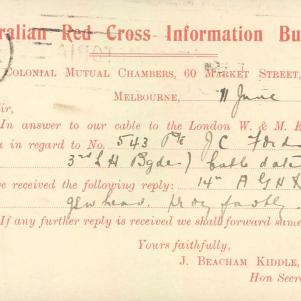 ralian Red Cross Information Bu
Colonial Mutual Chambers, 60 Market Street,
Melbourne, 11 June
ir,
In answer to our cable to the London W. & M. E
in regard to No. 543 Pte J C Ford
3rd L H Bgde) Cable date
ve received the following reply: 14th A G H
head, prog
If any further reply is received we shall forward same
Yours faithfully,
J. BEACHAM KIDDLE,
Hon Secre